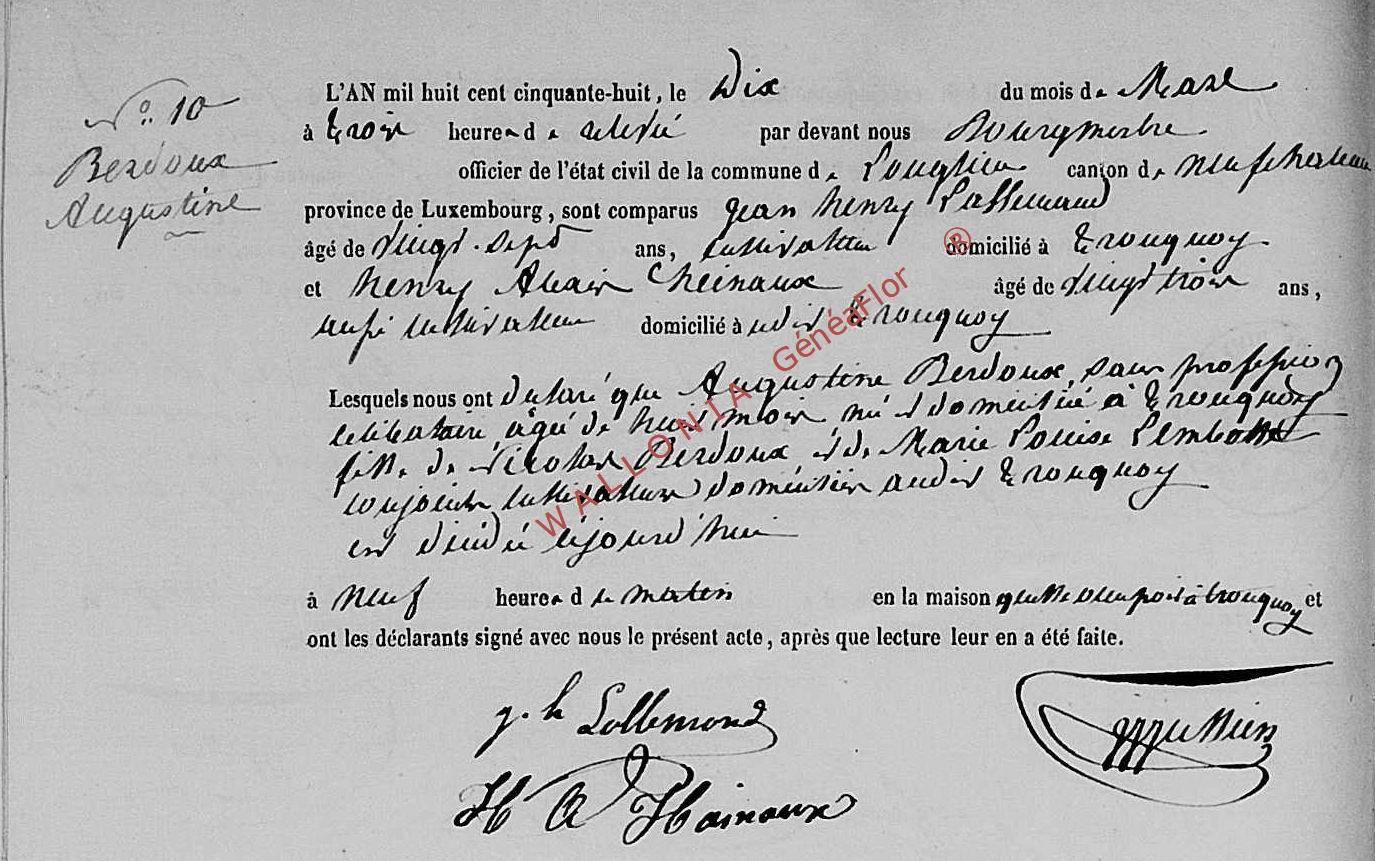 N° 10
Berdoux
Augustine
L'AN mil huit cent cinquante-huit, le Dix du mois de Mars
à trois heures de relevé par devant nous Bourgmestre
officier de l'état civil de la commune de Longlier canton de neufchateau
province de Luxembourg, sont comparus Jean henry Lallemand
âgé de vingt-sept ans, cultivateur domicilié à tronquoy
et henry Alexis heinaux âgé de vingt trois ans,
aussi cultivateur domicilié à udit tronquoy
Lesquels nous ont declaré que Augustine Berdoux, sans profession
celibataire, agée de huit mois, né et domiciliée à tronquoy
fille de Nicolas Berdoux et de Marie Louise Lambotte
conjoints cultivateurs domiciliés audit tronquoy
est décédée cejourd'hui
à neuf heures du matin en la maison à tronquoy et
ont les déclarants signé avec nous le présent acte, après que lecture leur en a été faite.
j. h Lallemand
H A Hainaux
WALLONIA GénéaFlor ®